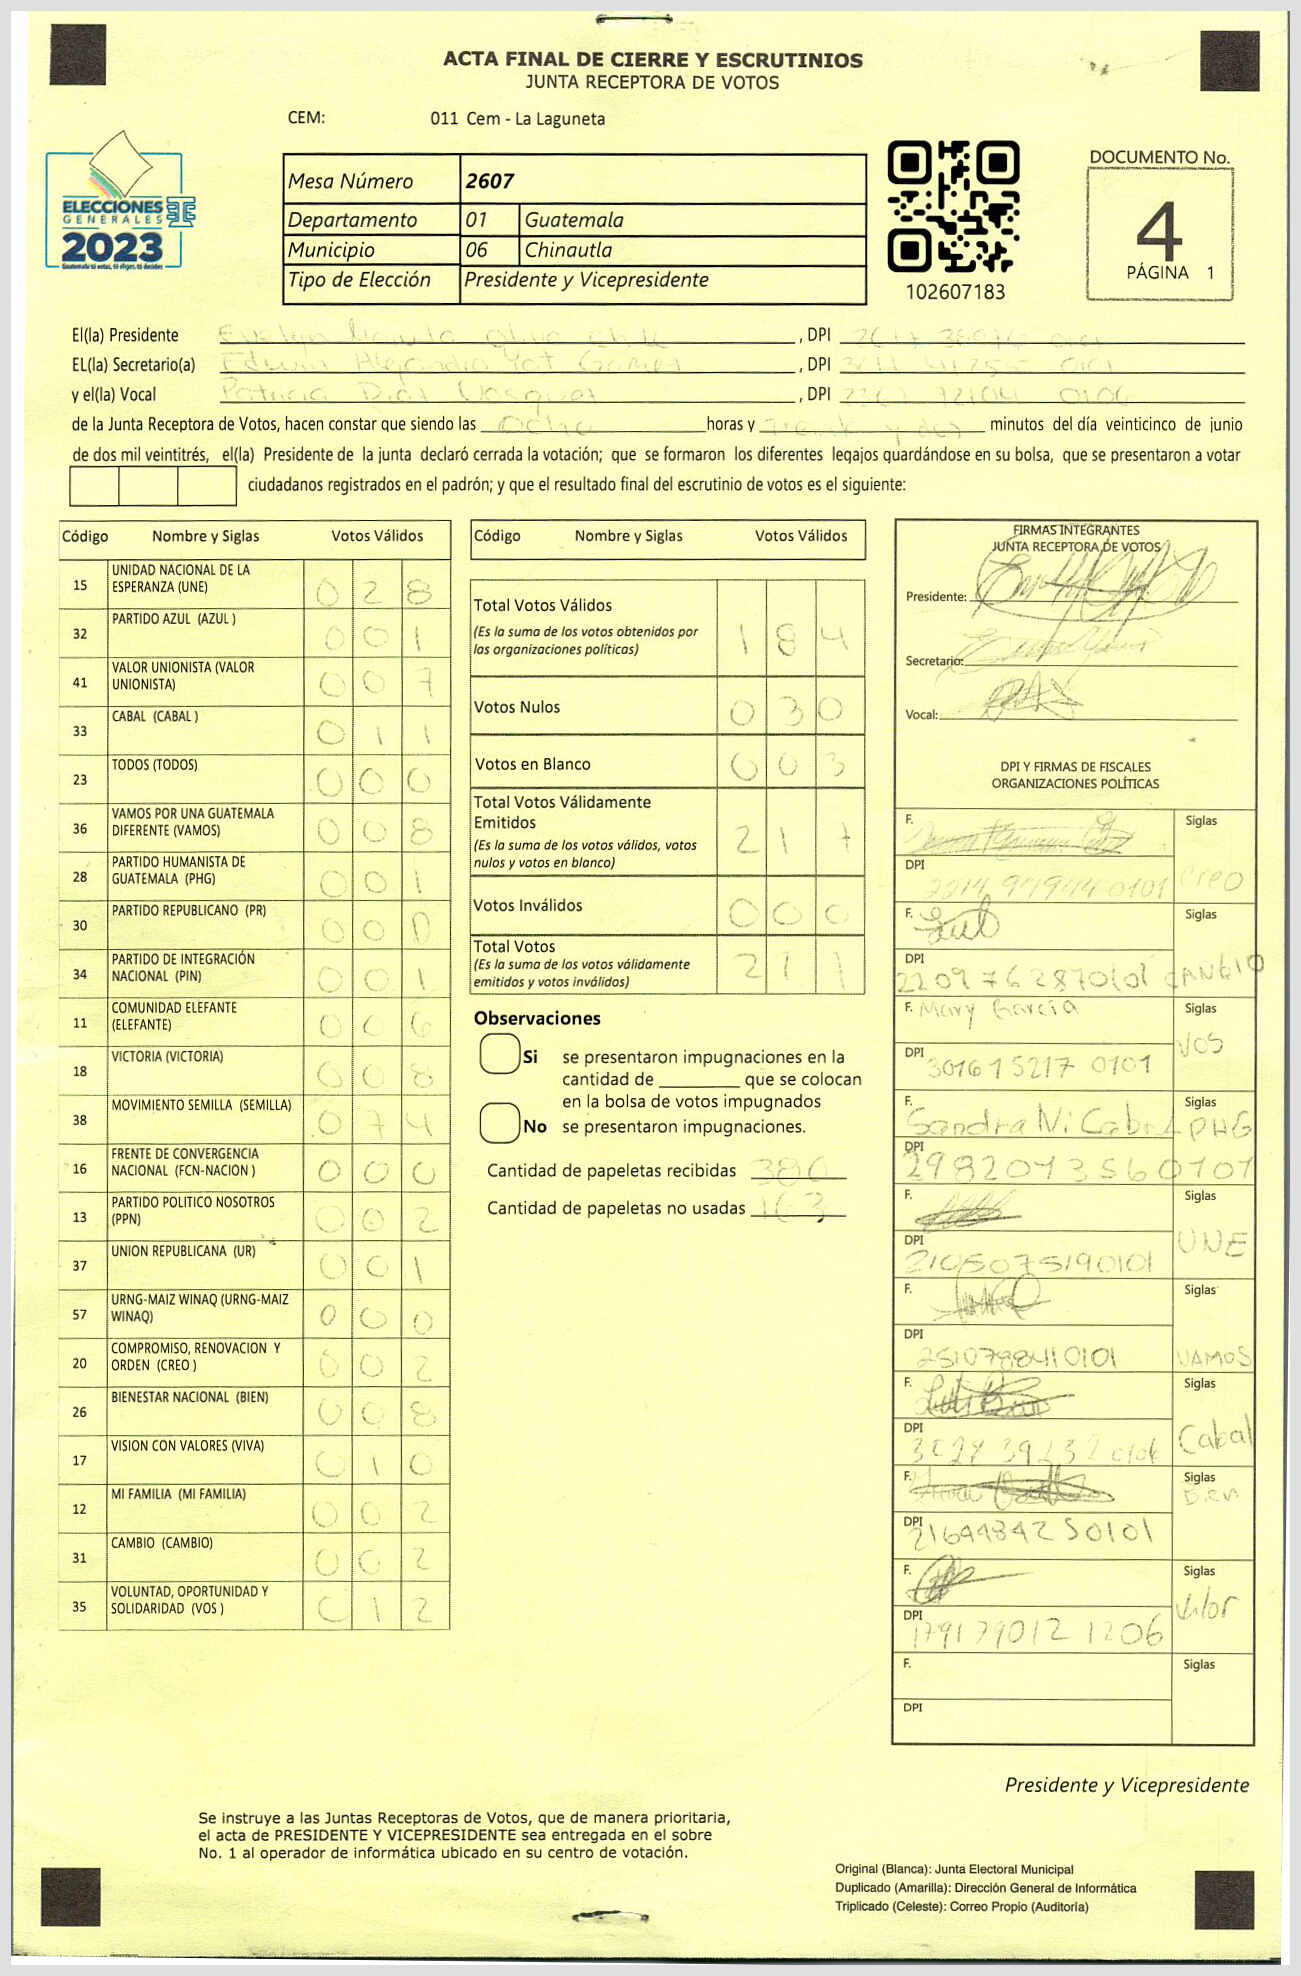 ACTA FINAL DE CIERRE Y ESCRUTINIOS
JUNTA RECEPTORA DE VOTOS
CEM: 011 Cem - La Laguneta
ELECCIONES
GENERALES
2023
Guatemala tú votas, tú eliges, tú decides
Mesa Número 2607
Departamento 01 Guatemala
Municipio 06 Chinautla
Tipo de Elección Presidente y Vicepresidente
102607183
DOCUMENTO No.
4
PÁGINA 1
El(la) Presidente Evelyn , DPI
EL(la) Secretario(a) Edwin Alejandro Yat Gomez , DPI
y el(la) Vocal Patricia Diaz Vasquez , DPI 2367 72104 0106
de la Junta Receptora de Votos, hacen constar que siendo las Ocho horas y treinta y dos minutos del día veinticinco de junio
de dos mil veintitrés, el(la) Presidente de la junta declaró cerrada la votación; que se formaron los diferentes legajos guardándose en su bolsa, que se presentaron a votar
ciudadanos registrados en el padrón; y que el resultado final del escrutinio de votos es el siguiente:
Código Nombre y Siglas Votos Válidos
15 UNIDAD NACIONAL DE LA ESPERANZA (UNE) 0 2 8
32 PARTIDO AZUL (AZUL ) 0 0 1
41 VALOR UNIONISTA (VALOR UNIONISTA) 0 0 7
33 CABAL (CABAL ) 0 1 1
23 TODOS (TODOS) 0 0 0
36 VAMOS POR UNA GUATEMALA DIFERENTE (VAMOS) 0 0 8
28 PARTIDO HUMANISTA DE GUATEMALA (PHG) 0 0 1
30 PARTIDO REPUBLICANO (PR) 0 0 0
34 PARTIDO DE INTEGRACIÓN NACIONAL (PIN) 0 0 1
11 COMUNIDAD ELEFANTE (ELEFANTE) 0 0 6
18 VICTORIA (VICTORIA) 0 0 8
38 MOVIMIENTO SEMILLA (SEMILLA) 0 7 4
16 FRENTE DE CONVERGENCIA NACIONAL (FCN-NACION ) 0 0 0
13 PARTIDO POLITICO NOSOTROS (PPN) 0 0 2
37 UNION REPUBLICANA (UR) 0 0 1
57 URNG-MAIZ WINAQ (URNG-MAIZ WINAQ) 0 0 0
20 COMPROMISO, RENOVACION Y ORDEN (CREO ) 0 0 2
26 BIENESTAR NACIONAL (BIEN) 0 0 8
17 VISION CON VALORES (VIVA) 0 1 0
12 MI FAMILIA (MI FAMILIA) 0 0 2
31 CAMBIO (CAMBIO) 0 0 2
35 VOLUNTAD, OPORTUNIDAD Y SOLIDARIDAD (VOS ) 0 1 2
Código Nombre y Siglas Votos Válidos
Total Votos Válidos 1 8 4
(Es la suma de los votos obtenidos por
las organizaciones políticas)
Votos Nulos 0 3 0
Votos en Blanco 0 0 3
Total Votos Válidamente
Emitidos 2 1 7
(Es la suma de los votos válidos, votos
nulos y votos en blanco)
Votos Inválidos 0 0 0
Total Votos 2 1
(Es la suma de los votos válidamente
emitidos y votos inválidos)
Observaciones
Si se presentaron impugnaciones en la
cantidad de ________ que se colocan
en la bolsa de votos impugnados
No se presentaron impugnaciones.
Cantidad de papeletas recibidas 380
Cantidad de papeletas no usadas 163
FIRMAS INTEGRANTES
JUNTA RECEPTORA DE VOTOS
Presidente:
Secretario:
Vocal:
DPI Y FIRMAS DE FISCALES
ORGANIZACIONES POLÍTICAS
F. Siglas
DPI Creo
F. Siglas
DPI 2209 76287 0101 CAMBIO
F. Mary Garcia Siglas
DPI 30161 5217 0101 VOS
F. Sandra Ni Cabrl Siglas PHG
DPI 2982073560101
F. Siglas
DPI 2105075190101 UNE
F. Siglas
DPI 2510798410101 VAMOS
F. Siglas
DPI Cabal
F. Siglas Bien
DPI 2164484250101
F. Siglas
DPI 179179012 1206 Valor
F. Siglas
DPI
Presidente y Vicepresidente
Se instruye a las Juntas Receptoras de Votos, que de manera prioritaria,
el acta de PRESIDENTE Y VICEPRESIDENTE sea entregada en el sobre
No. 1 al operador de informática ubicado en su centro de votación.
Original (Blanca): Junta Electoral Municipal
Duplicado (Amarilla): Dirección General de Informática
Triplicado (Celeste): Correo Propio (Auditoría)